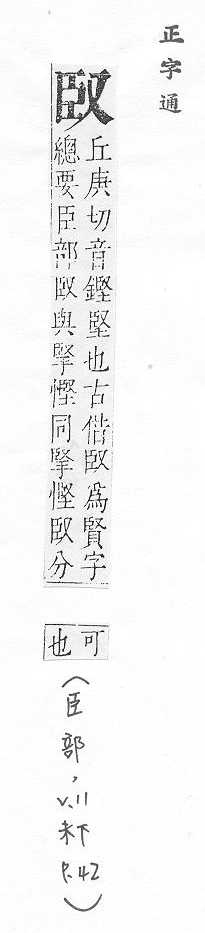 正字通
臤
丘庚切音鏗堅也古借臤爲賢字
總要臣部臤與掔慳同掔慳臤分
可
也
（臣部，v.11
未下
P.42）